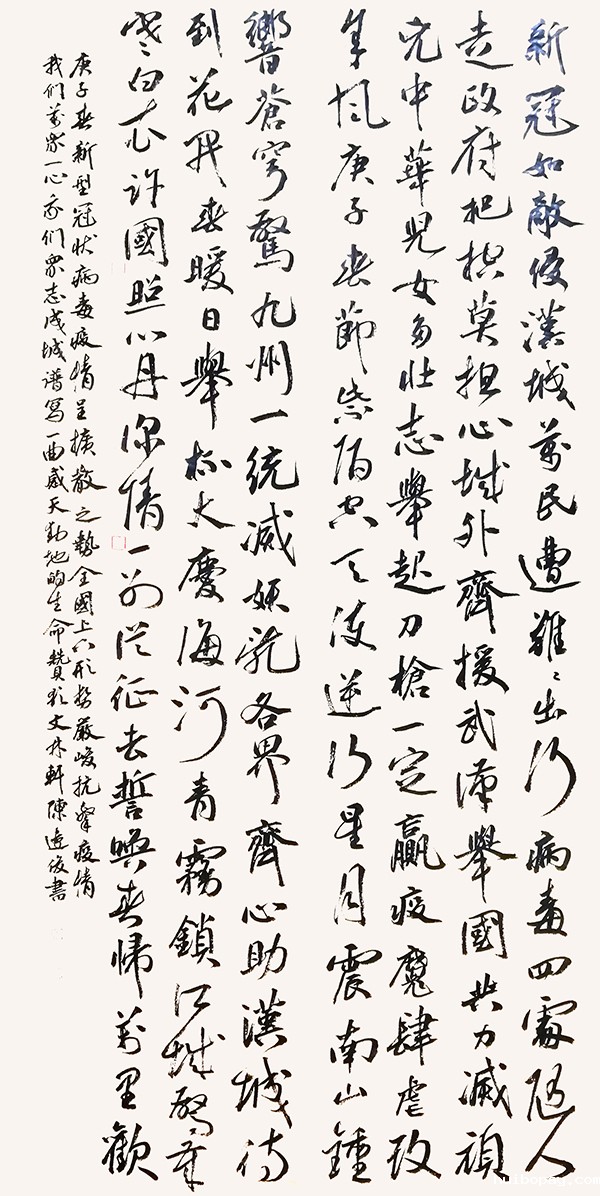 新冠如敵侵漢城萬民遭難〻出行病毒四處隨人
走政府把控莫担心城外齊援武漢舉國共力滅頑
兇中華兒女多壯志舉起刀槍一定贏疫魔肆虐改
年風庚子春節紫陌空天使逆行星月震南山鍾
響蒼穹驚九州一統滅妖氛各界齊心助漢城待
到花開春暖日舉杯大慶海河青霧鎖江城
寒白衣許國照心丹深情一別從征去誓喚春歸萬里歡
庚子春新型冠狀病毒疫情呈擴散之勢全國上下形勢嚴峻抗擊疫情
我们萬眾一心我们眾志成城谱寫一曲感天動地的生命贊歌文林軒陳遠俊書